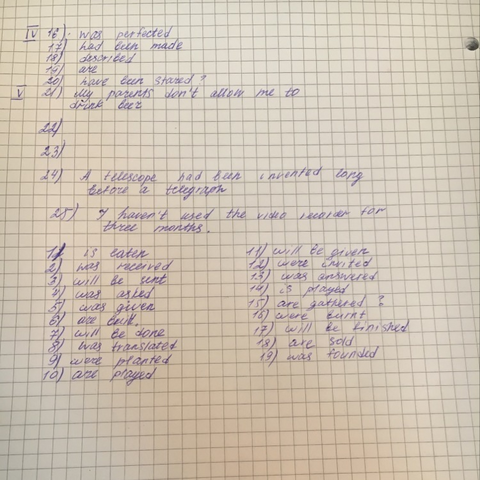 IV 16). was perfected
17) had been made
18) described
19) are
20) have been stared?
V 21) My parents don't allow me to
drink beer
22)
23)
24) A telescope had been invented long
before a telegraph
25) I haven't used the video recorder for
three months.
1) is eaten
2) was received
3) will be sent
4) was asked
5) was given
6) are built.
7) will be done
8) was translated
9) were planted
10) are played
11) will be given
12) were invited
13) was answered
14) is played
15) are gathered?
16) were burnt
17) will be finished
18) are sold
19) was founded